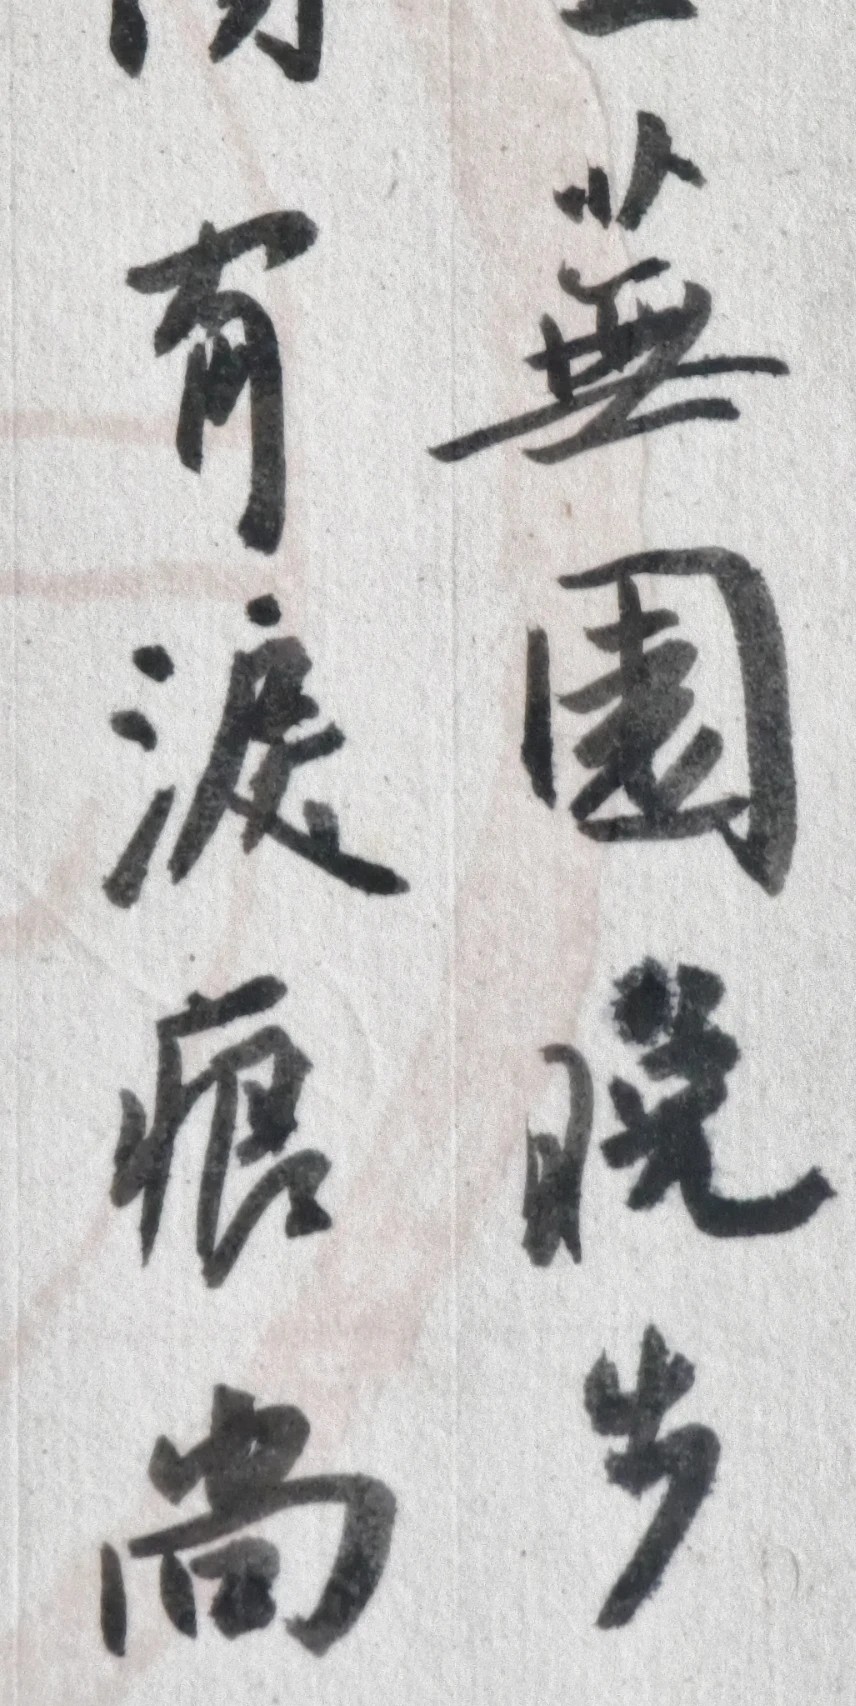 蕪園晚步
有淚痕尚